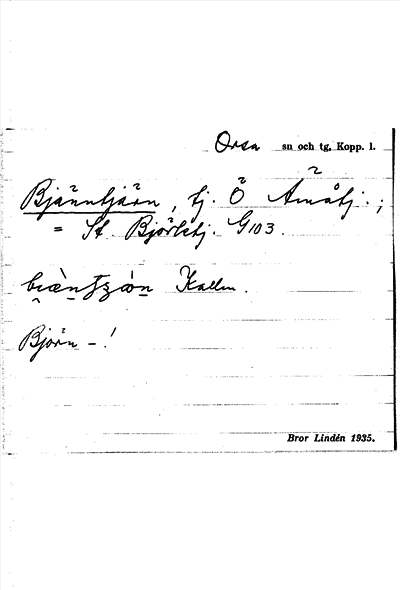 Orsa sn och tg. Kopp. l.
Bjänntjärn, tj. Ö Åmåtj.;
= St. Björktj. G103.
Kallm.
Björn – !
Bror Lindén 1935.